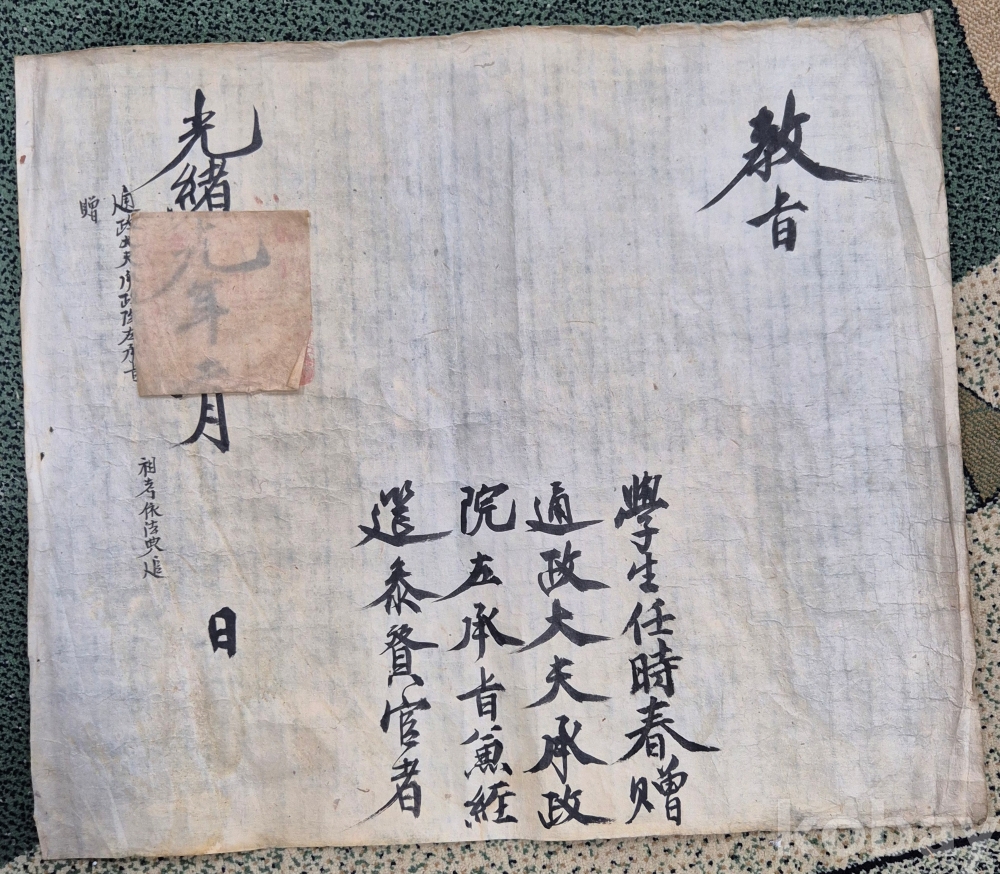 敎旨
學生任時春贈
通政大夫承政
院左承旨兼經
筵參贊官者
光緒九年月日
通政大夫承政院左承旨祖考依法典追
贈
kobay